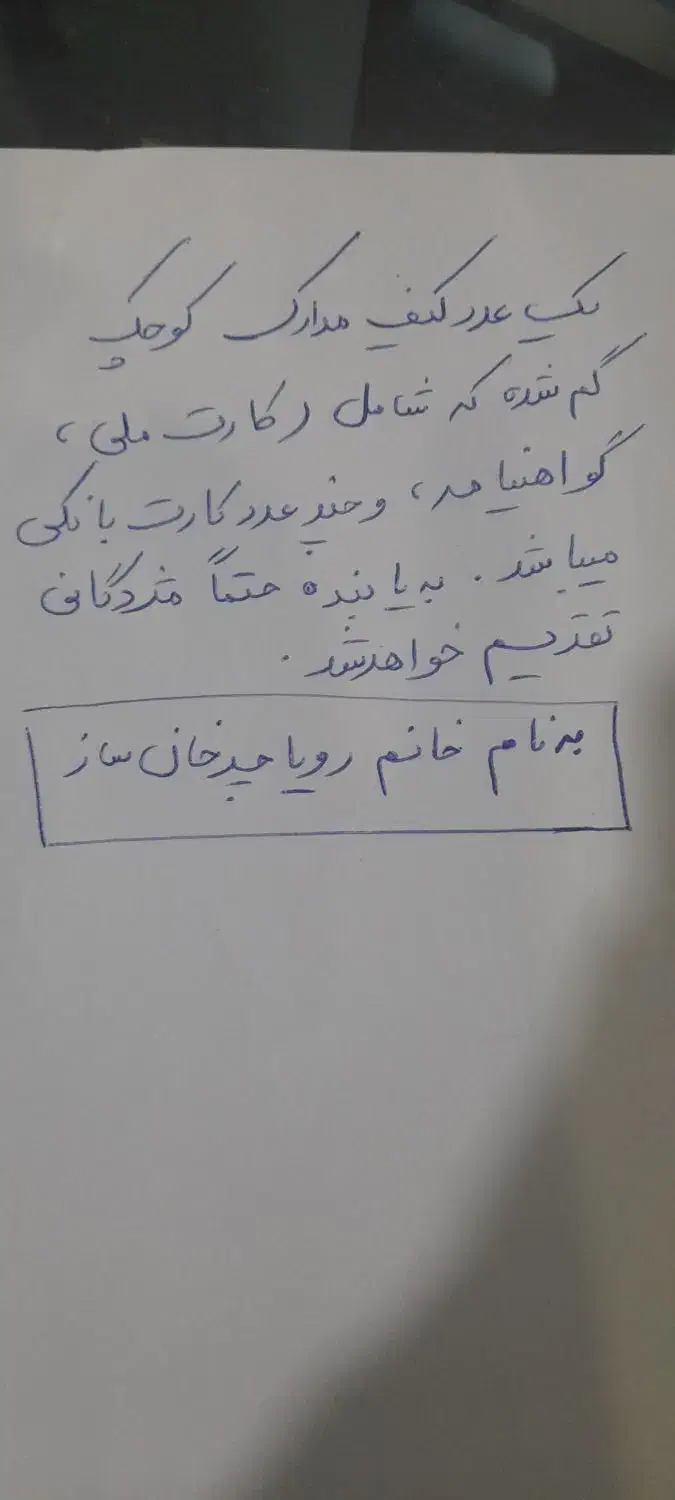 یک عدد کیف مدارک کوچک
گم شده که شامل (کارت ملی،
گواهنیامه، و چند عدد کارت بانکی
میباشد. به یابنده حتماً مژدگانی
تقدیم خواهد شد.
به نام خانم رویا چرخان ساز